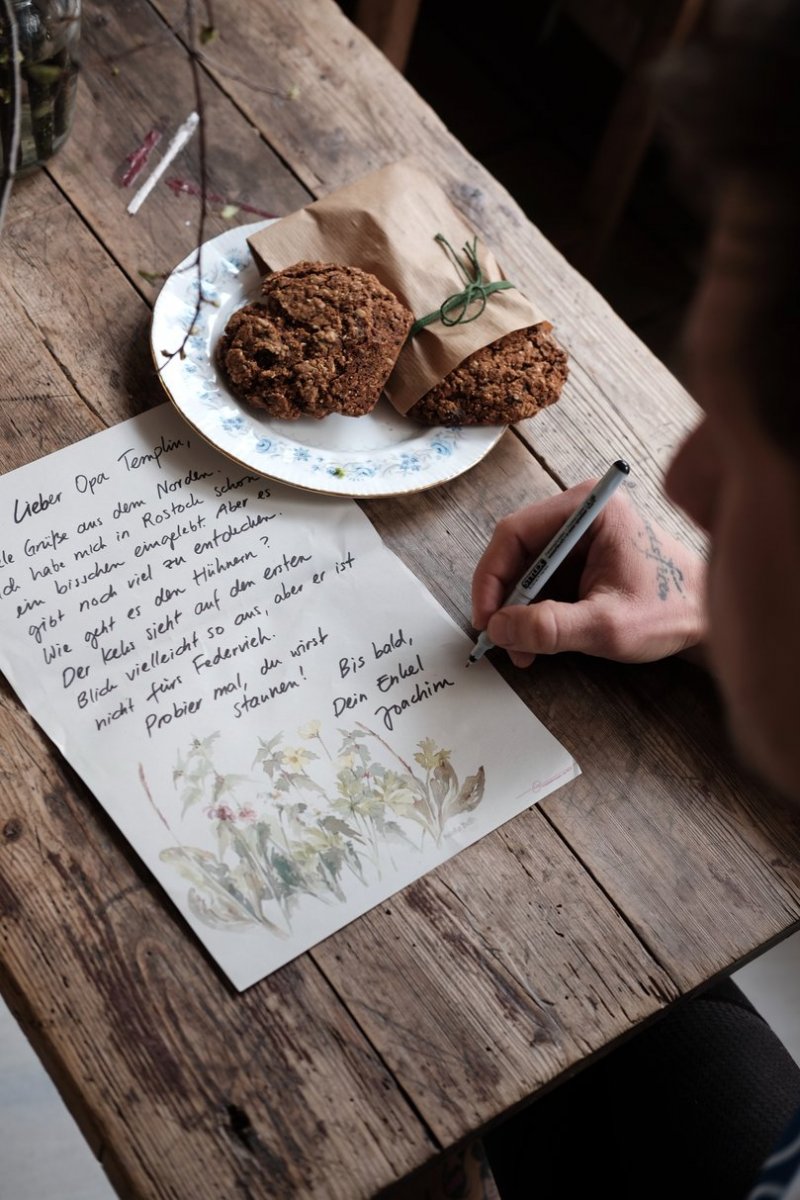 Lieber Opa Templin,
Grüße aus dem Norden.
habe mich in Rostock schon
ein bisschen eingelebt. Aber es
gibt noch viel zu entdecken.
Wie geht es den Hühnern?
Der Keks sieht auf den ersten
Blick vielleicht so aus, aber er ist
nicht fürs Federvieh.
Probier mal, du wirst
staunen!
Bis bald,
Dein Enkel
Joachim